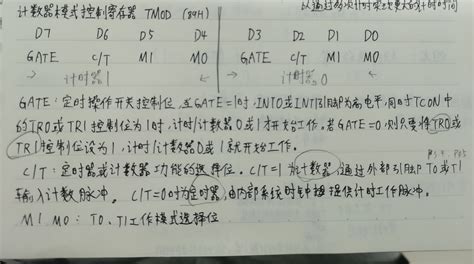 计数器模式控制寄存器 TMOD (89H)
D7 D6 D5 D4 D3 D2 D1 D0
GATE C/T M1 M0 GATE C/T M1 M0
计时器1 计时器0
GATE:定时操作开关控制位,当GATE=1时,INT0或INT1引脚为高电平,同时TCON中
的TR0或TR1控制位为1时,计时/计数器0或1才开始工作。若GATE=0,则只要将TR0或
TR1控制位设为1,计时/计数器0或1就开始工作。
C/T:定时器或计数器功能的选择位。C/T=1为计数器,通过外部引脚T0或T1
输入计数脉冲。C/T=0时为定时器,由内部系统时钟提供计时工作脉冲。
M1、M0:T0、T1工作模式选择位